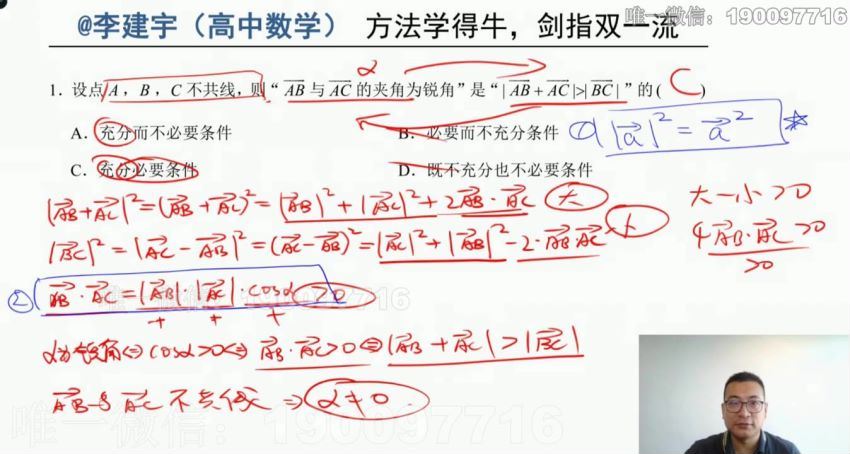 唯一微信：190097716
@李建宇（高中数学） 方法学得牛，剑指双一流
α
1. 设点 A，B，C 不共线，则“ AB 与 AC 的夹角为锐角”是“| AB + AC |>| BC |”的( C )
A. 充分而不必要条件
B. 必要而不充分条件
C. 充分必要条件
D. 既不充分也不必要条件
① |a|² = a²
|AB+AC|² = (AB+AC)² = |AB|² + |AC|² + 2AB·AC 大
大-小>0
|BC|² = |AC-AB|² = (AC-AB)² = |AC|² + |AB|² - 2·AB·AC 小
4AB·AC>0
>0
② AB·AC = |AB|·|AC|·cosα >0
+ + +
α为锐角⇔cosα>0⇔AB·AC>0⇔|AB+AC|>|BC|
AB与AC不共线⇒α≠0
唯一微信：190097716